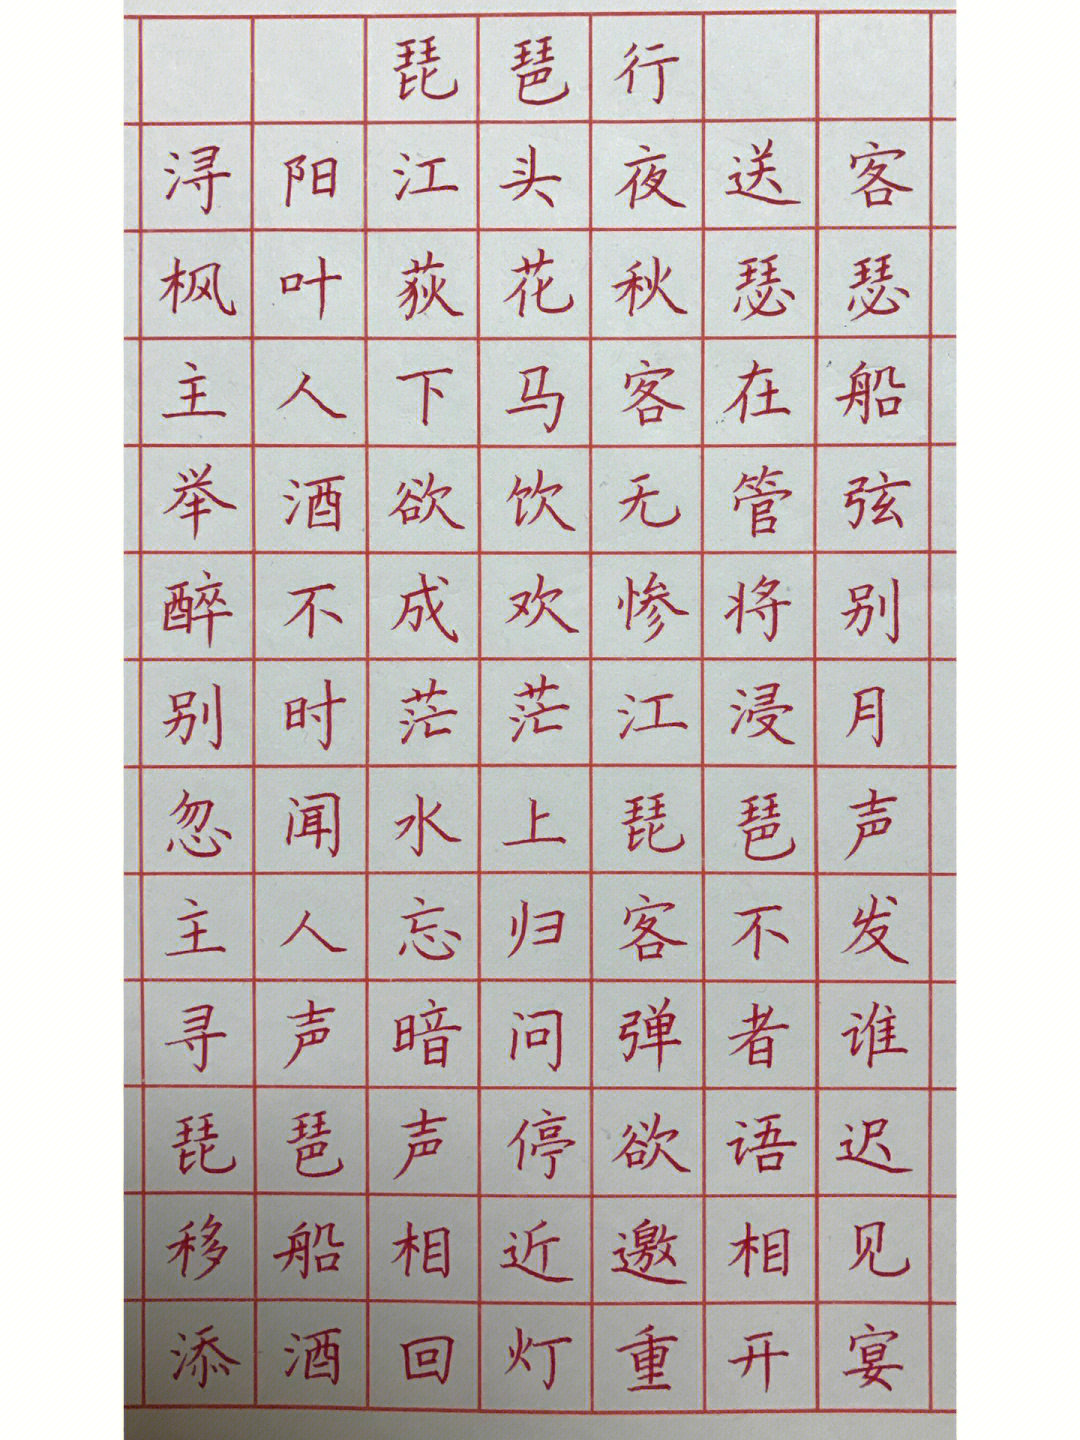 琵琶行
浔阳江头夜送客
枫叶荻花秋瑟瑟
主人下马客在船
举酒欲饮无管弦
醉不成欢惨将别
别时茫茫江浸月
忽闻水上琵琶声
主人忘归客不发
寻声暗问弹者谁
琵琶声停欲语迟
移船相近邀相见
添酒回灯重开宴